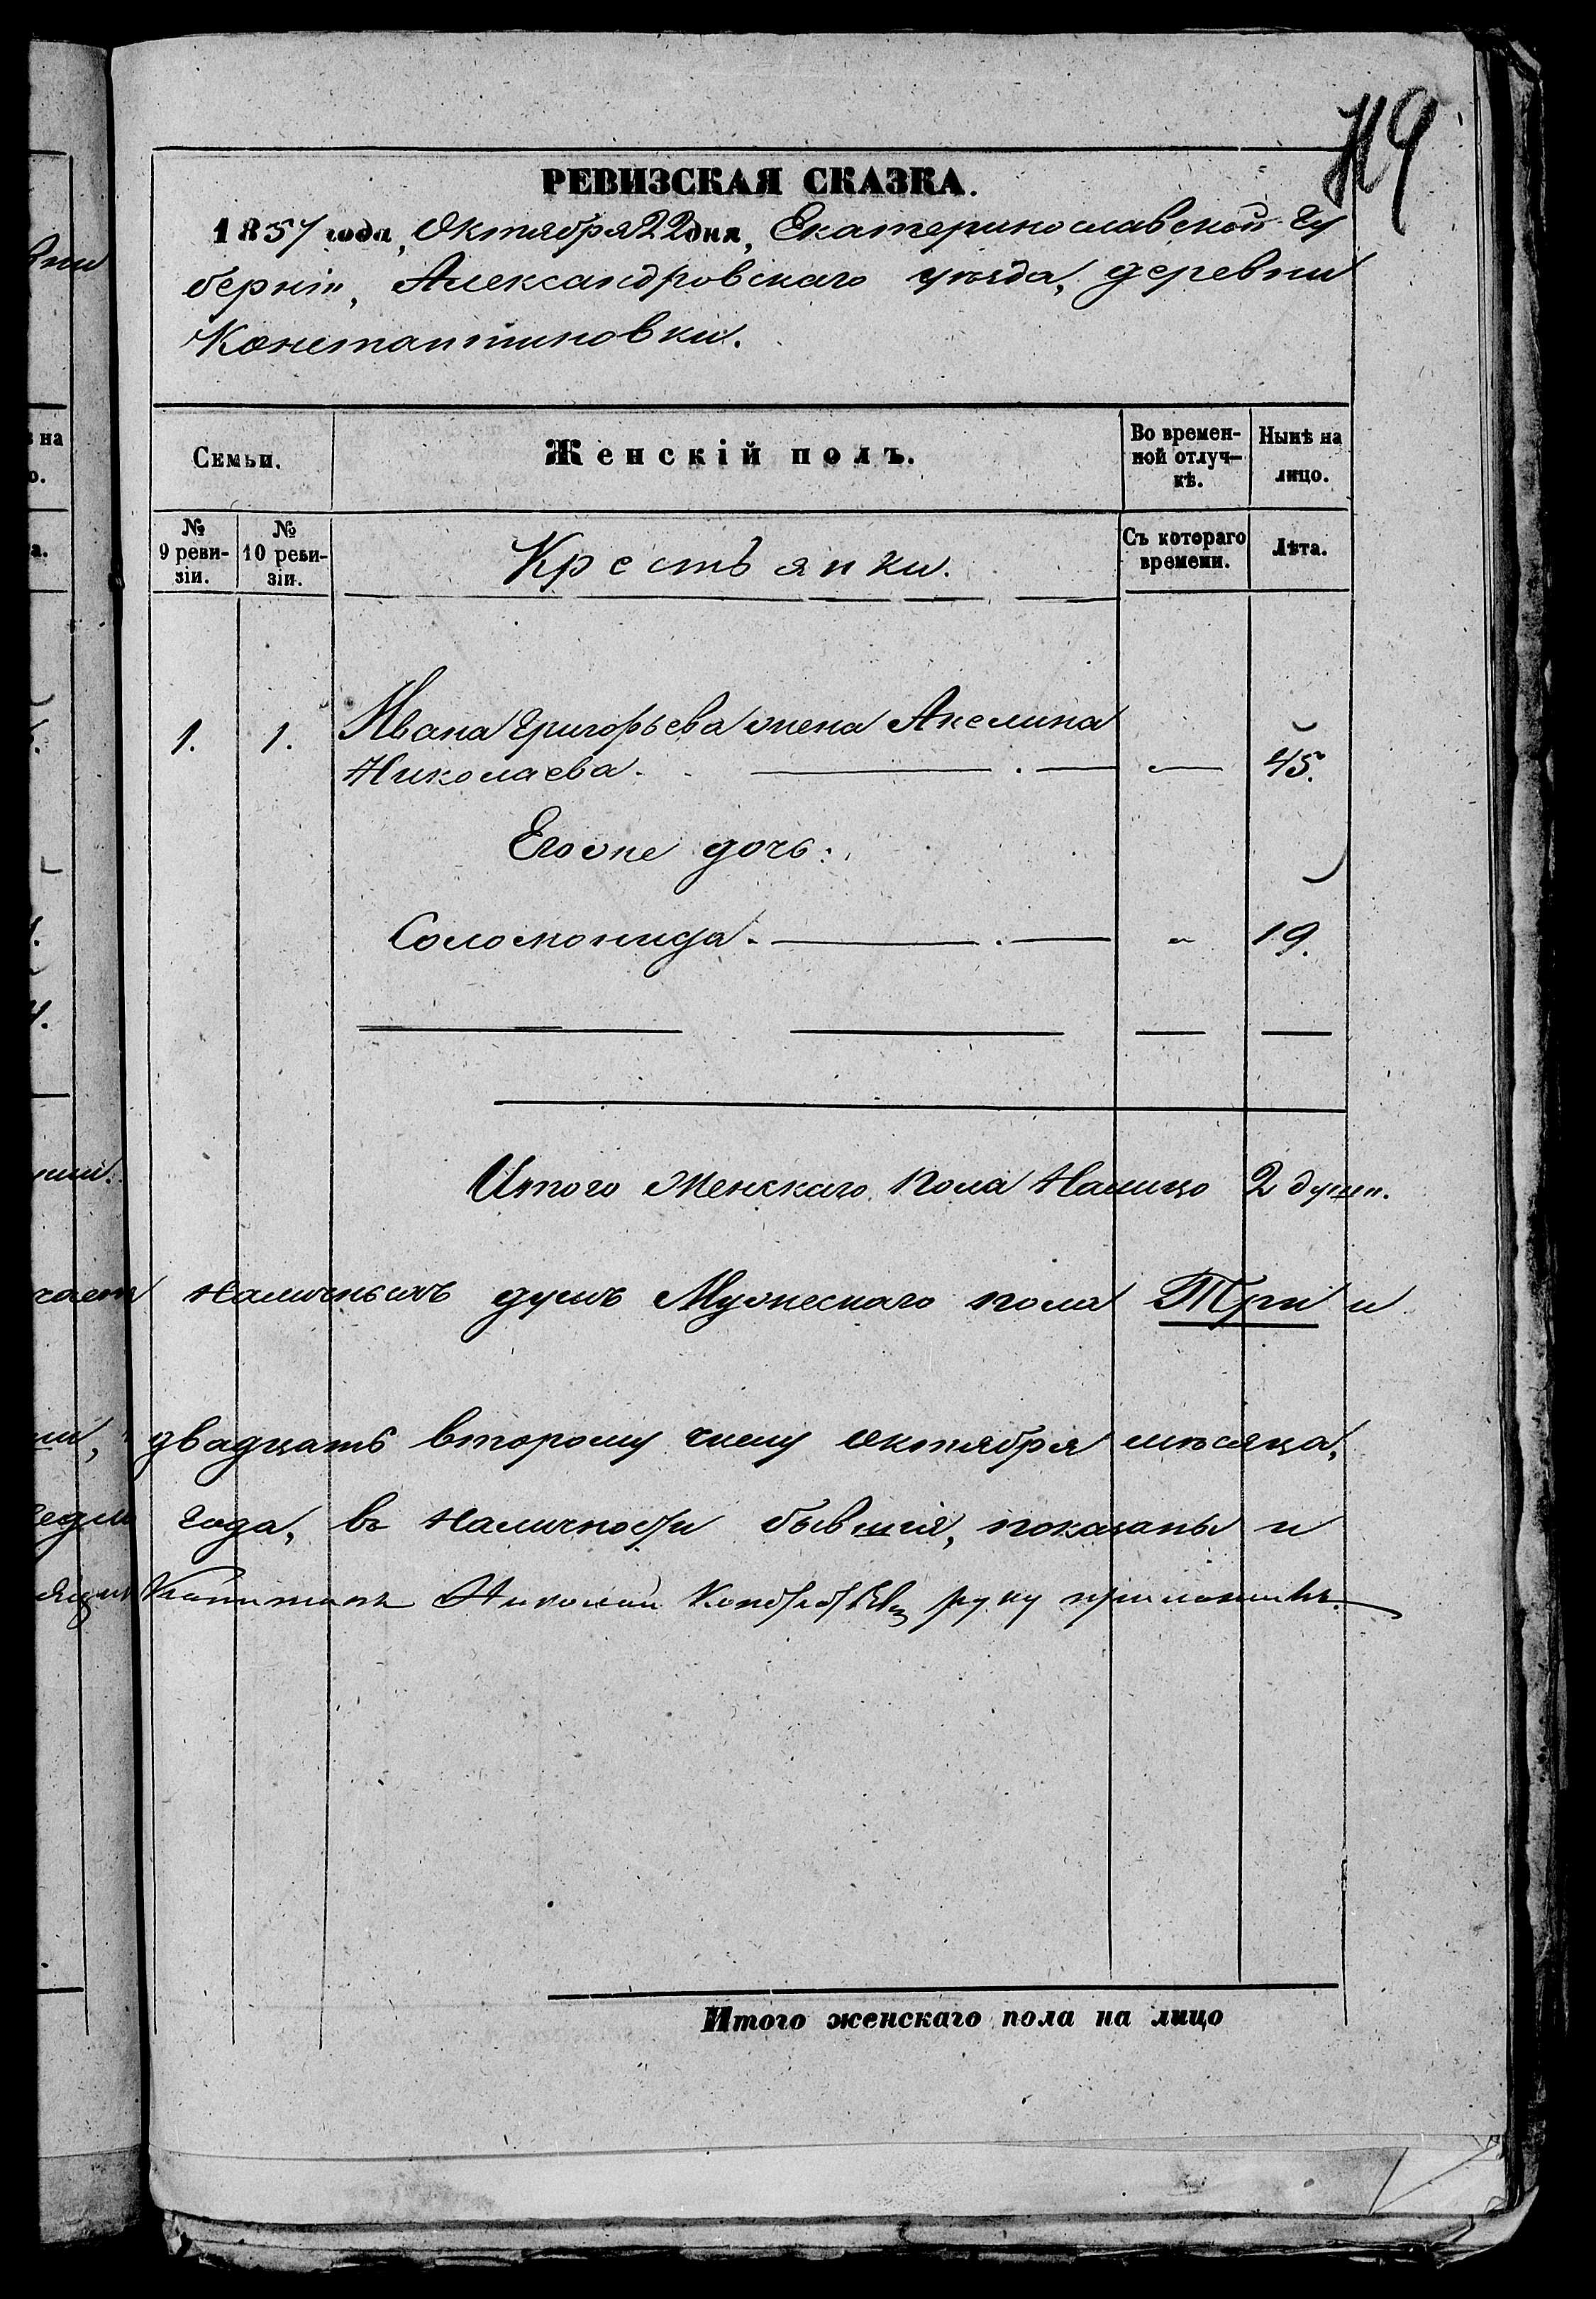 119
РЕВИЗСКАЯ СКАЗКА.
1857 года, Октября 22 дня, Екатеринославской Гу
берніи, Александровскаго уѣзда, деревни
Константиновки.
Семьи.
Женскій полъ.
Во времен-
ной отлуч-
кѣ.
Нынѣ на
лицо.
№
9 реви-
зіи.
№
10 реви-
зіи.
Крестьянки.
Съ котораго
времени.
Лѣта.
1. 1. Ивана Григорьева жена Акелина
Николаева. 45.
Его же дочь:
Соломонида. 19.
Итого женскаго пола налицо 2 души.
наличныхъ душъ Мужескаго пола Три и
двадцать второму числу Октября мѣсяца,
года, въ наличности бывшія, показаны и
Капитанъ Николай руку приложилъ.
Итого женскаго пола на лицо